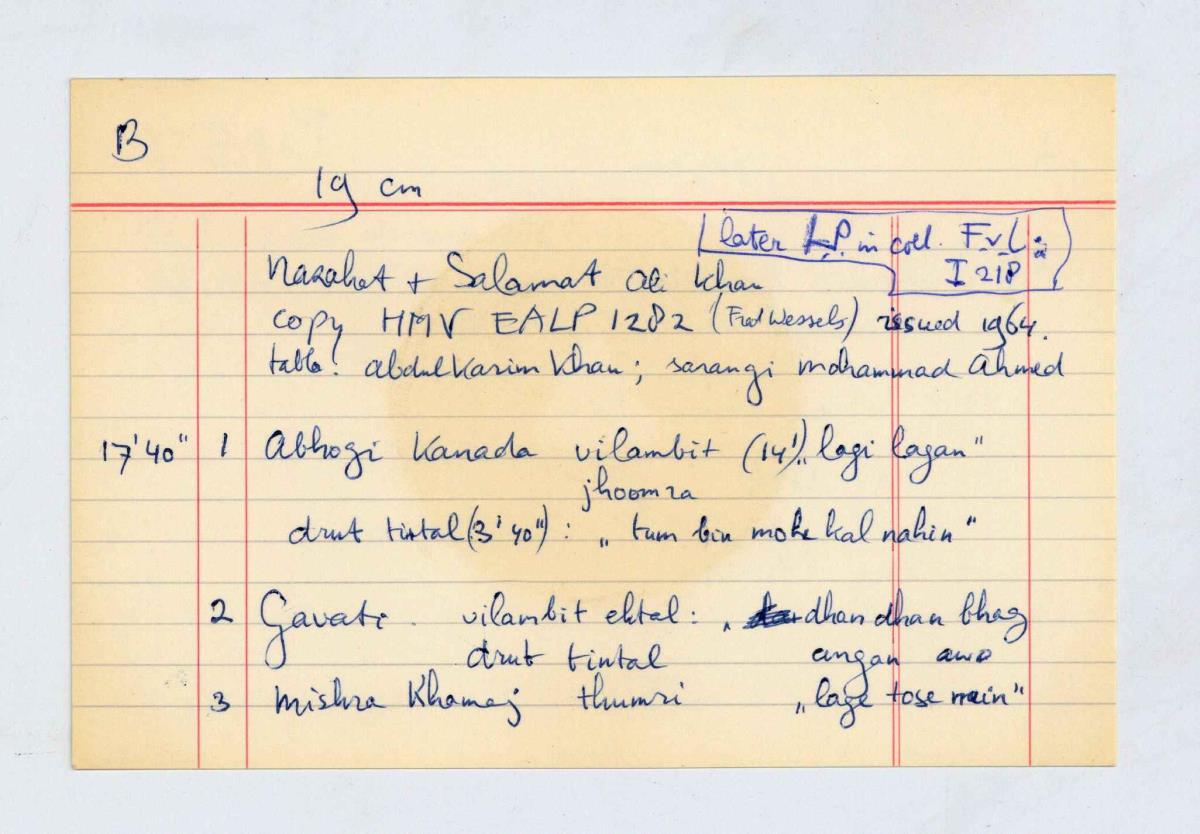 B
19 cm
later LP. in coll. F.v.L.:
I 218
Nazahat + Salamat Ali Khan
copy HMV EALP 1282 (Fred Wessels) issued 1964.
tabla: abdul Karim Khan; sarangi mohammad Ahmed
17'40" 1 Abhogi Kanada vilambit (14') „lagi lagan"
jhoomra
drut tintal (3'40"): „tum bin mohe kal nahin"
2 Gavati. vilambit ektal: „dhan dhan bhag
drut tintal angan awo
3 Mishra Khamaj thumri „lage tose nain"